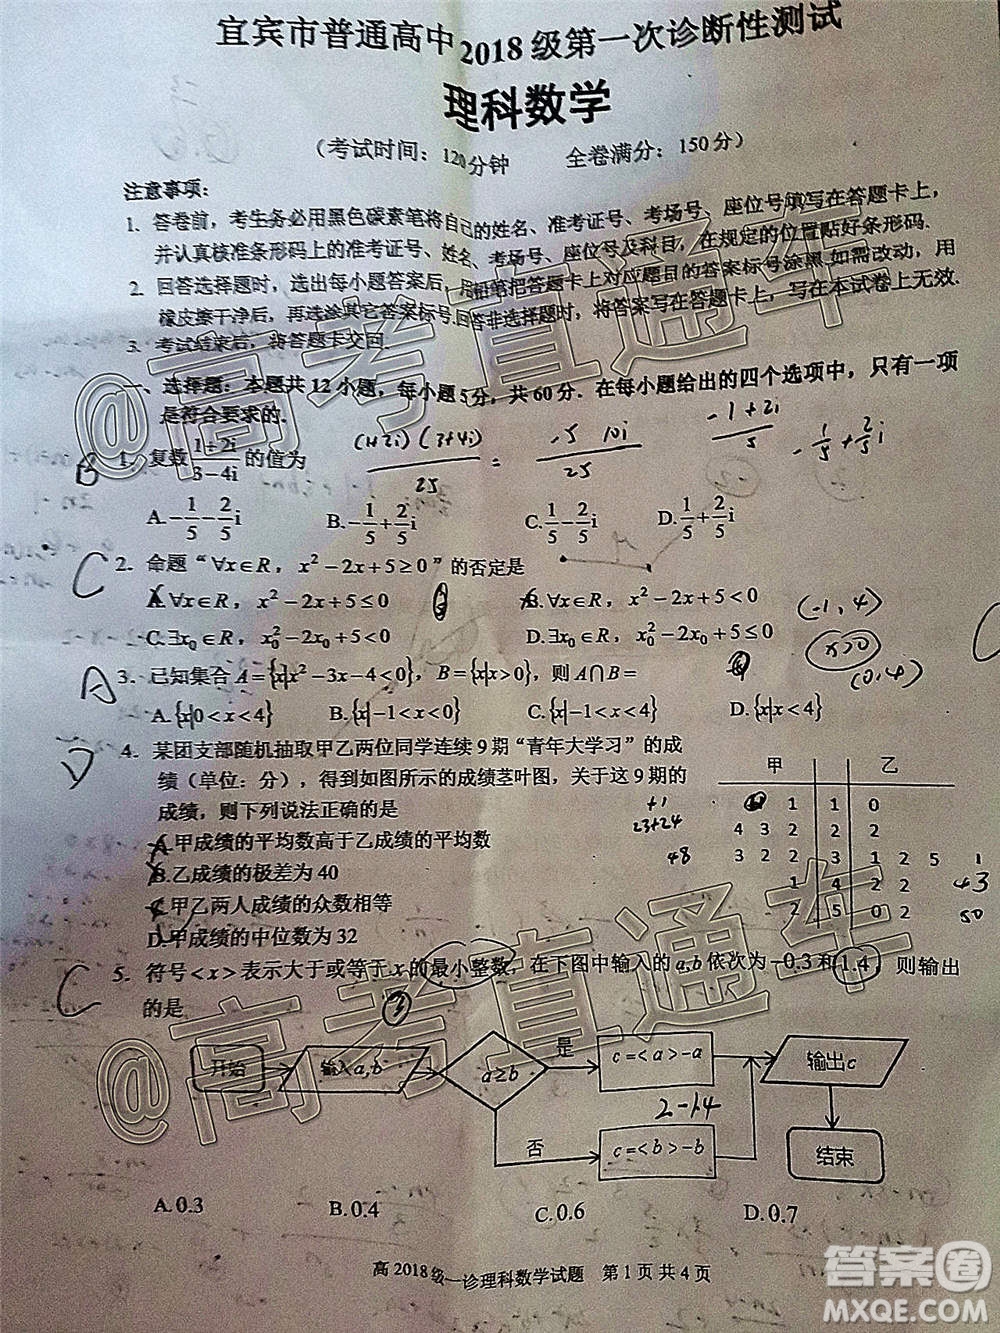 宜宾市普通高中2018级第一次诊断性测试
理科数学
(考试时间：120分钟 全卷满分：150分)
注意事项：
1. 答卷前，考生务必用黑色碳素笔将自己的姓名、准考证号、考场号、座位号填写在答题卡上，
并认真核准条形码上的准考证号、姓名、考场号、座位号及科目，在规定的位置贴好条形码.
2. 回答选择题时，选出每小题答案后，用铅笔把答题卡上对应题目的答案标号涂黑.如需改动，用
橡皮擦干净后，再选涂其它答案标号.回答非选择题时，将答案写在答题卡上，写在本试卷上无效.
3. 考试结束后，将答题卡交回.
一、选择题：本题共12小题，每小题5分，共60分．在每小题给出的四个选项中，只有一项
是符合要求的.
(1+2i)(3+4i)/25 = -5 10i/25 -1+2i/5 -1/5+2/5i
B 1. 复数(1+2i)/(3-4i)的值为
A.-1/5-2/5i B.-1/5+2/5i C.1/5-2/5i D.1/5+2/5i
C 2. 命题“∀x∈R，x²-2x+5≥0”的否定是
A.∀x∈R，x²-2x+5≤0 B.∀x∈R，x²-2x+5<0
(-1,4)
C.∃x₀∈R，x₀²-2x₀+5<0 D.∃x₀∈R，x₀²-2x₀+5≤0
x>0
A 3. 已知集合A={x|x²-3x-4<0}，B={x|x>0}，则A∩B=
(0,4)
A.{x|0<x<4} B.{x|-1<x<0} C.{x|-1<x<4} D.{x|x<4}
D 4. 某团支部随机抽取甲乙两位同学连续9期“青年大学习”的成
绩（单位：分），得到如图所示的成绩茎叶图，关于这9期的
成绩，则下列说法正确的是
A.甲成绩的平均数高于乙成绩的平均数
B.乙成绩的极差为40
C.甲乙两人成绩的众数相等
D.甲成绩的中位数为32
甲 乙
1 1 0
4 3 2 2 2
3 2 2 3 1 2 5 1
1 4 2 2 43
2 5 0 2 50
+1
23+24
48
C 5. 符号<x>表示大于或等于x的最小整数，在下图中输入的a,b依次为-0.3和1.4，则输出
的是
开始
输入a,b
a≥b
是
c=<a>-a
输出c
2-1.4
否
c=<b>-b
结束
A.0.3 B.0.4 C.0.6 D.0.7
高2018级一诊理科数学试题 第1页共4页
@高考直通车
@高考直通车
答案圈
MXQE.COM